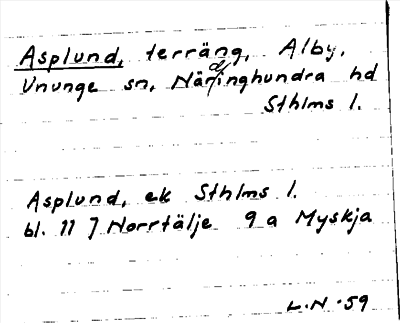 Asplund, terräng, Alby,
Ununge sn, Närdinghundra hd
Sthlms l.
Asplund, ek Sthlms l.
bl. 11 J Norrtälje 9 a Myskja
L.N -59